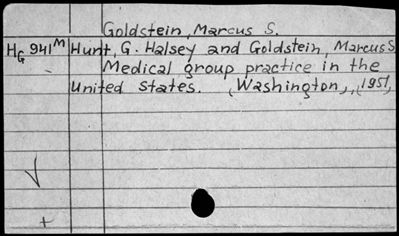 Goldstein, Marcus S.
HG 941M Hunt, G. Halsey and Goldstein, Marcus S.
Medical group practice in the
United States. (Washington, (1951,